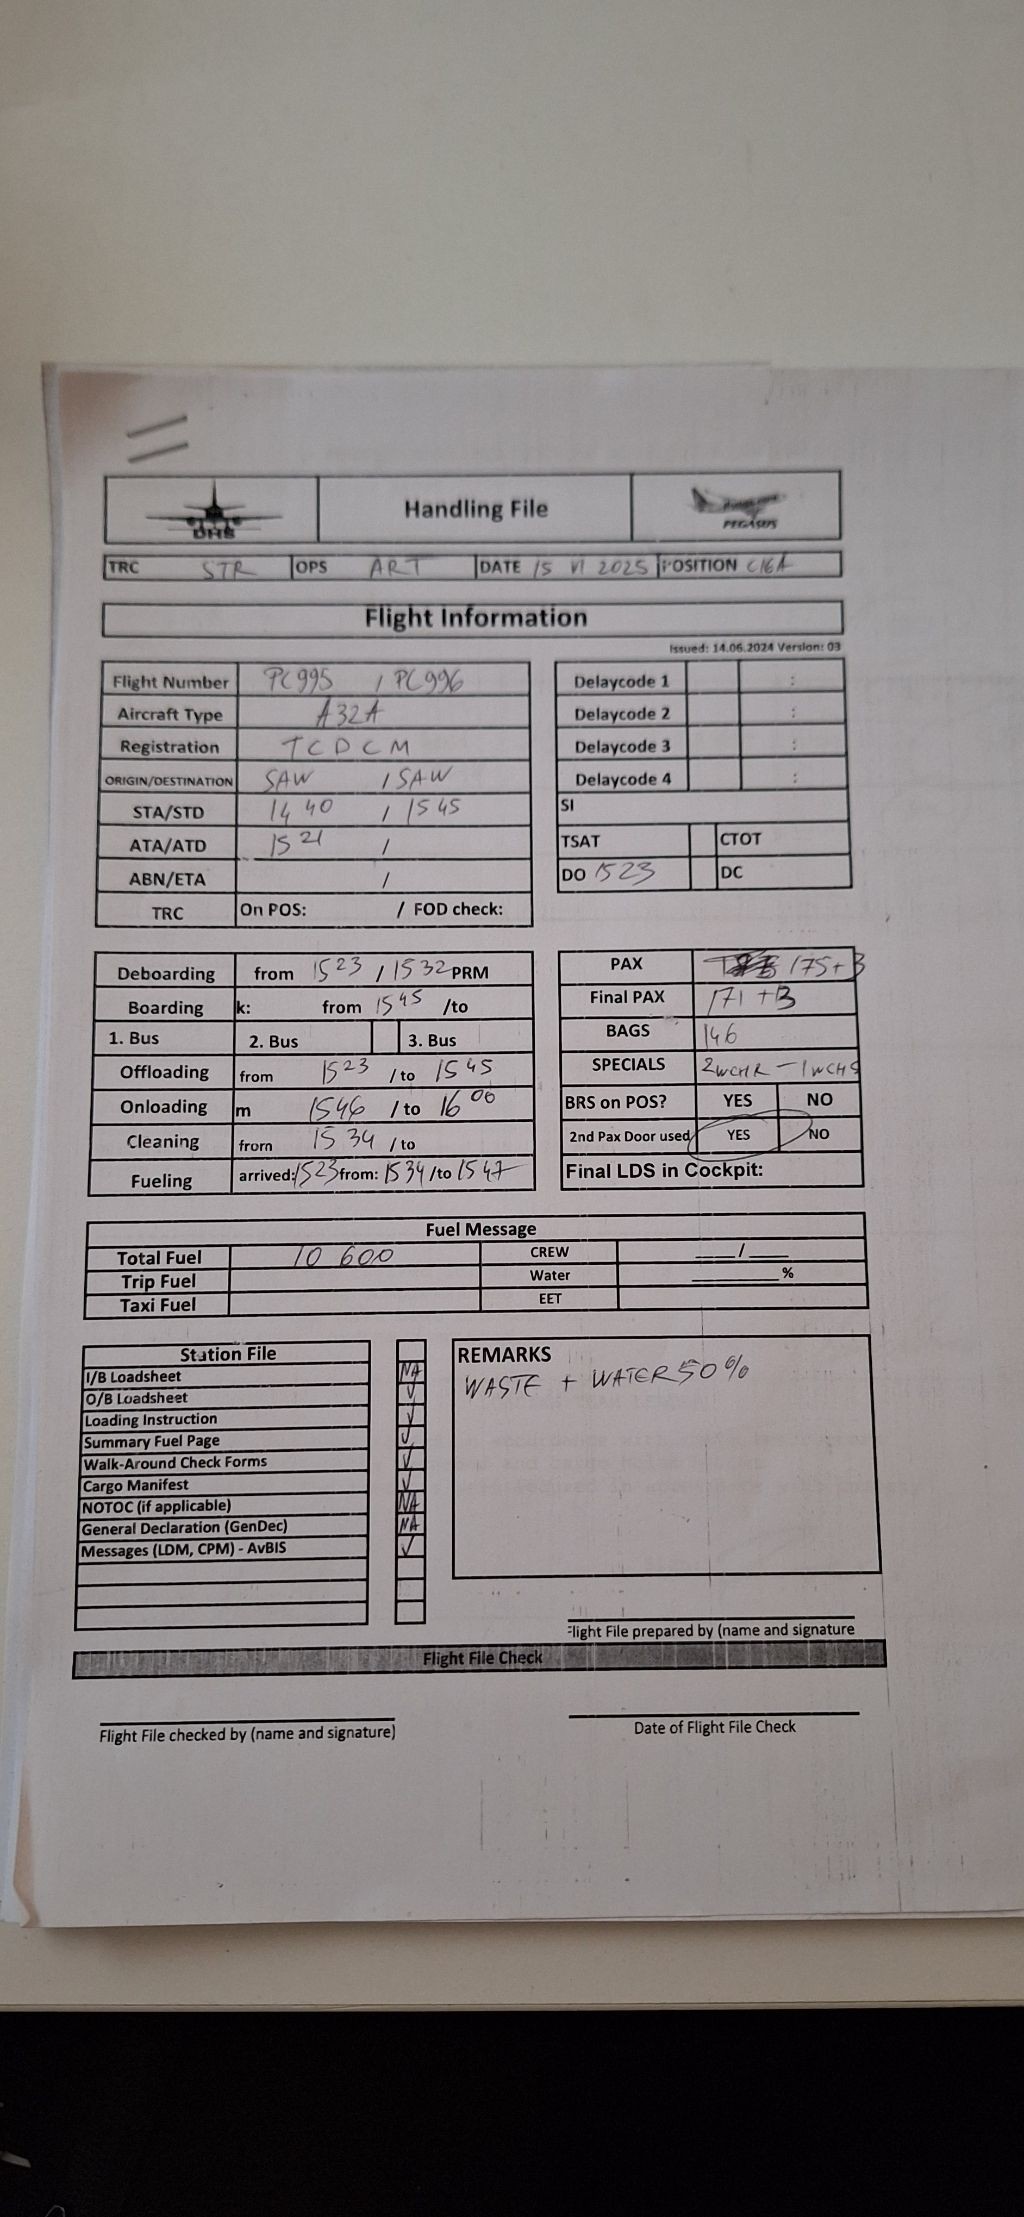 DHS Handling File PEGASUS
TRC STR OPS ART DATE 15 VI 2025 POSITION C16A
Flight Information
Issued: 14.06.2024 Version: 03
Flight Number PC995 / PC996
Aircraft Type A32A
Registration TCDCM
ORIGIN/DESTINATION SAW / SAW
STA/STD 1440 / 1545
ATA/ATD 1521 /
ABN/ETA /
TRC On POS: / FOD check:
Delaycode 1 :
Delaycode 2 :
Delaycode 3 :
Delaycode 4 :
SI
TSAT CTOT
DO 1523 DC
Deboarding from 1523 / 1532 PRM
Boarding k: from 1545 /to
1. Bus 2. Bus 3. Bus
Offloading from 1523 /to 1545
Onloading m 1546 /to 1600
Cleaning from 1534 /to
Fueling arrived: 1523 from: 1534 /to 1547
PAX 175+3
Final PAX 171+3
BAGS 146
SPECIALS 2WCHR - 1WCHS
BRS on POS? YES NO
2nd Pax Door used YES NO
Final LDS in Cockpit:
Fuel Message
Total Fuel 10 600 CREW ____/____
Trip Fuel Water ________%
Taxi Fuel EET
Station File
I/B Loadsheet NA
O/B Loadsheet ✓
Loading Instruction ✓
Summary Fuel Page ✓
Walk-Around Check Forms ✓
Cargo Manifest ✓
NOTOC (if applicable) NA
General Declaration (GenDec) NA
Messages (LDM, CPM) - AvBIS ✓
REMARKS
WASTE + WATER 50%
Flight File prepared by (name and signature
Flight File Check
Flight File checked by (name and signature)
Date of Flight File Check